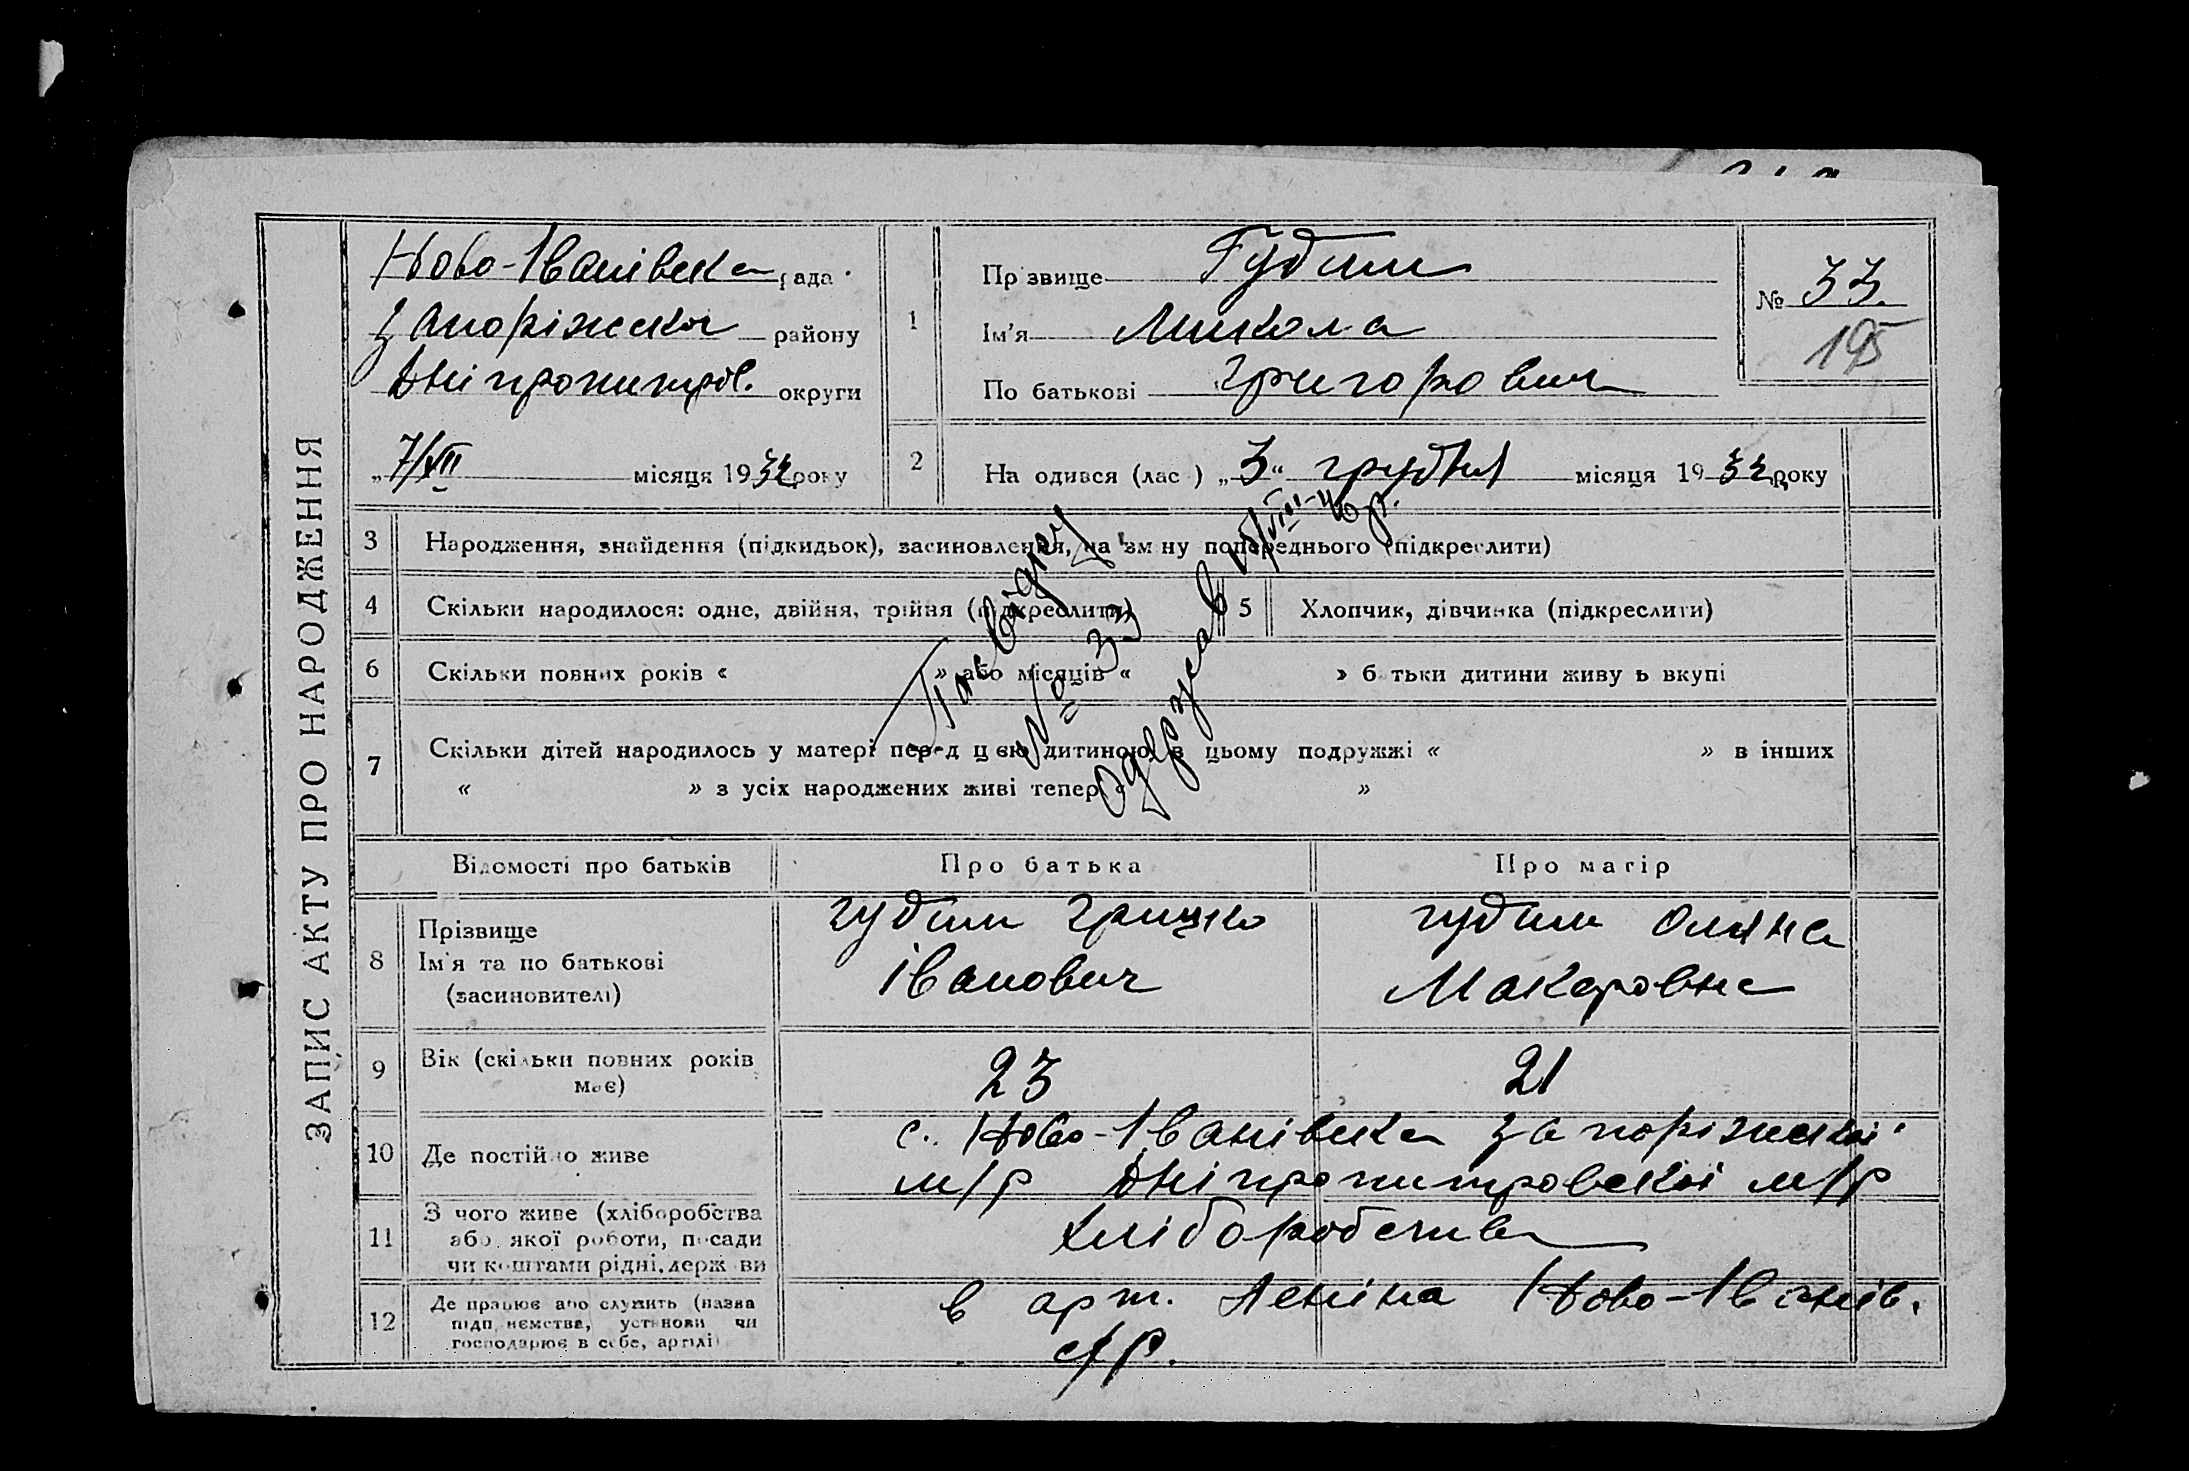 ЗАПИС АКТУ ПРО НАРОДЖЕННЯ
Ново-Іванівска рада
Запоріжскої району
Дніпропитров. округи
„7/XII місяця 1932 року
1
Прізвище Гудим
Ім'я Микола
По батькові Григорович
№ 33.
195
2 На одився (лас ) „3“ грудня місяця 1932 року
3 Народження, знайдення (підкидьок), засиновлення, на зм ну попереднього (підкреслити)
4 Скільки народилося: одне, двійня, трійня (підкреслити) 5 Хлопчик, дівчинка (підкреслити)
6 Скільки повних років « » або місяців « » б тьки дитини живу ь вкупі
7 Скільки дітей народилось у матері перед цією дитиною в цьому подружжі « » в інших
« » з усіх народжених живі тепер « »
Посвідку
№ 33
Одержав 15/VIII-46р.
Відомості про батьків Про батька Про матір
8 Прізвище
Ім'я та по батькові
(засиновителі)
Гудим Грицко
Іванович
Гудим Оляна
Макаровна
9 Вік (скільки повних років
має)
23 21
10 Де постійно живе
с. Ново-Іванівка Запоріжскої
м/р Дніпропитровскої м/р
11 З чого живе (хліборобства
або якої роботи, посади
чи коштами рідні, держ ви
Хліборобства
12 Де працює або служить (назва
підп ємства, установи чи
господарює в себе, артілі
в арт. Леніна Ново-Іванів.
с/р.